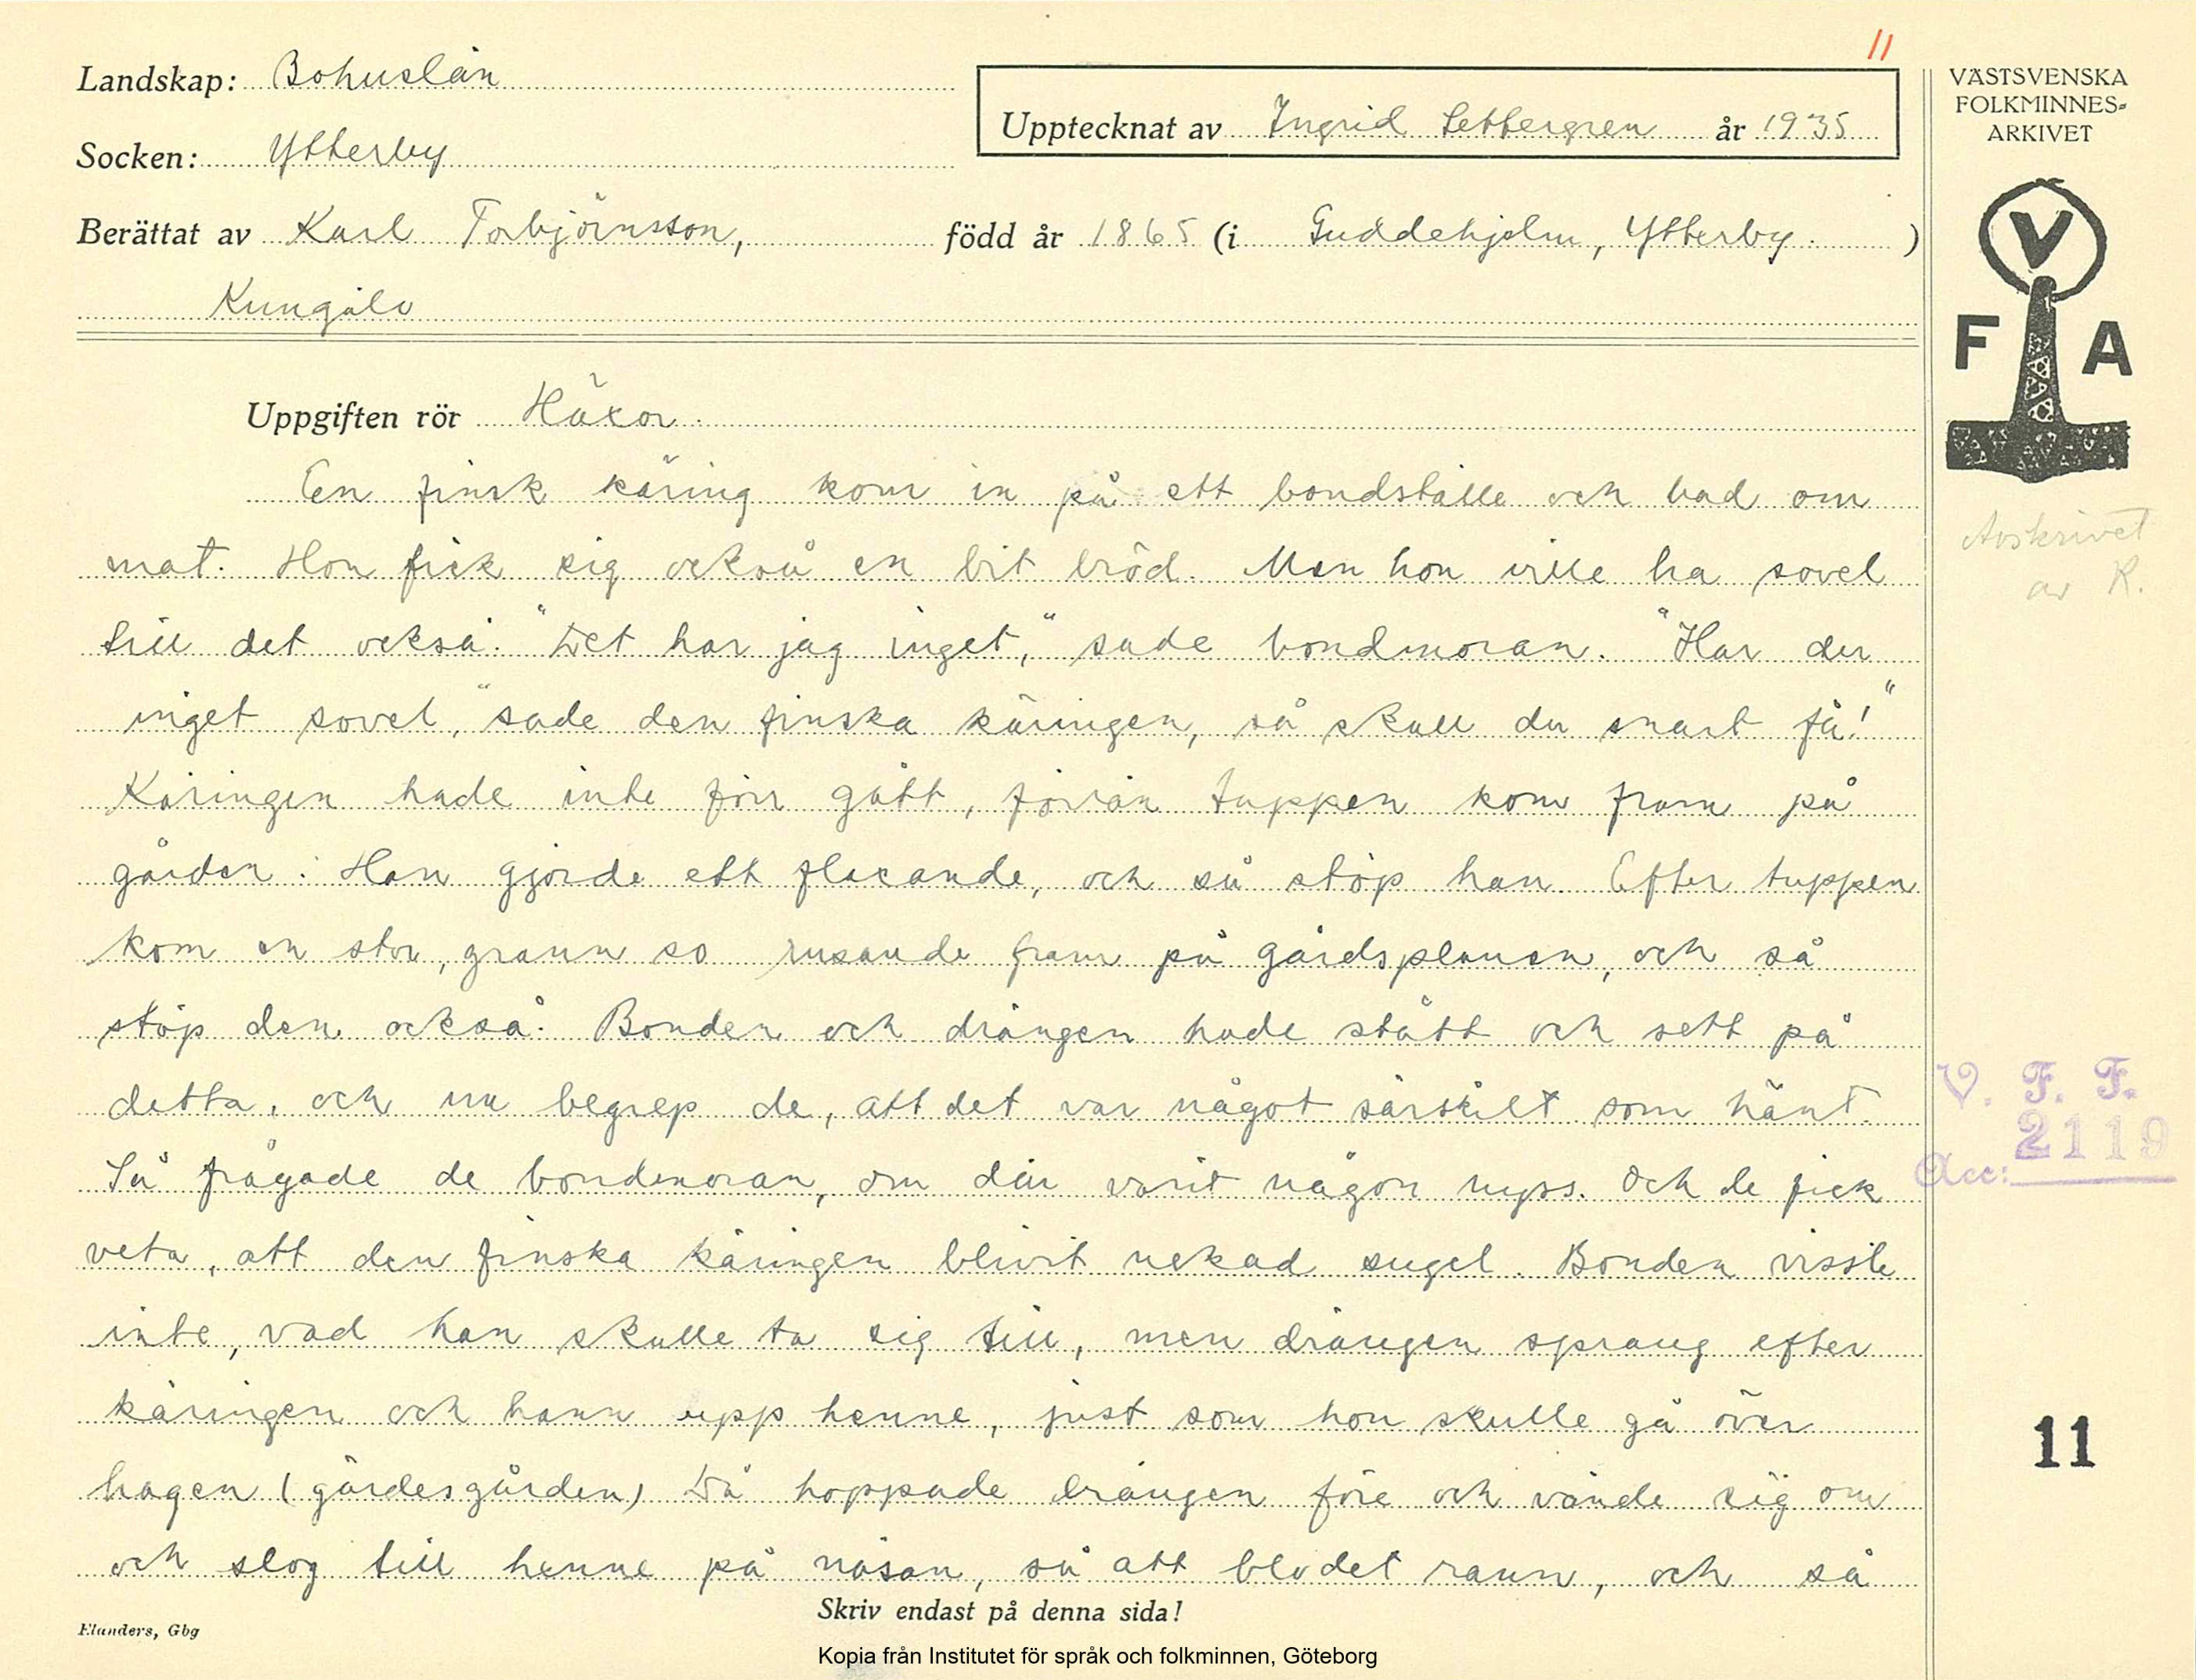 11
Landskap: Bohuslän
Upptecknat av Ingrid Settergren år 1935
Socken: Ytterby
Berättat av Karl Torbjörnsson, född år 1865 (i Guddehjelm, Ytterby. )
Kungälv
VÄSTSVENSKA
FOLKMINNES-
ARKIVET
V
F A
Avskrivet
av K.
Uppgiften rör Häxor.
En finsk käring kom in på ett bondställe och bad om
mat. Hon fick sig också en bit bröd. Men hon ville ha sovel
till det också. "Det har jag inget," sade bondmoran. "Har du
inget sovel," sade den finska käringen, så skall du snart få!"
Käringen hade inte förr gått, förrän tuppen kom fram på
gården. Han gjorde ett flaxande, och så stöp han. Efter tuppen
kom en stor, grann so rusande fram på gårdsplanen, och så
stöp den också. Bonden och drängen hade stått och sett på
detta, och nu begrep de, att det var något särskilt som hänt.
Så frågade de bondmoran, om där varit någon nyss. Och de fick
veta, att den finska käringen blivit nekad sugel. Bonden visste
inte, vad han skulle ta sig till, men drängen sprang efter
käringen och hann upp henne, just som hon skulle gå över
hagen (gärdesgården) Då hoppade drängen före och vände sig om
och slog till henne på näsan, så att blodet rann, och så
V. F. F.
Acc: 2119
11
Skriv endast på denna sida!
Elanders, Gbg
Kopia från Institutet för språk och folkminnen, Göteborg